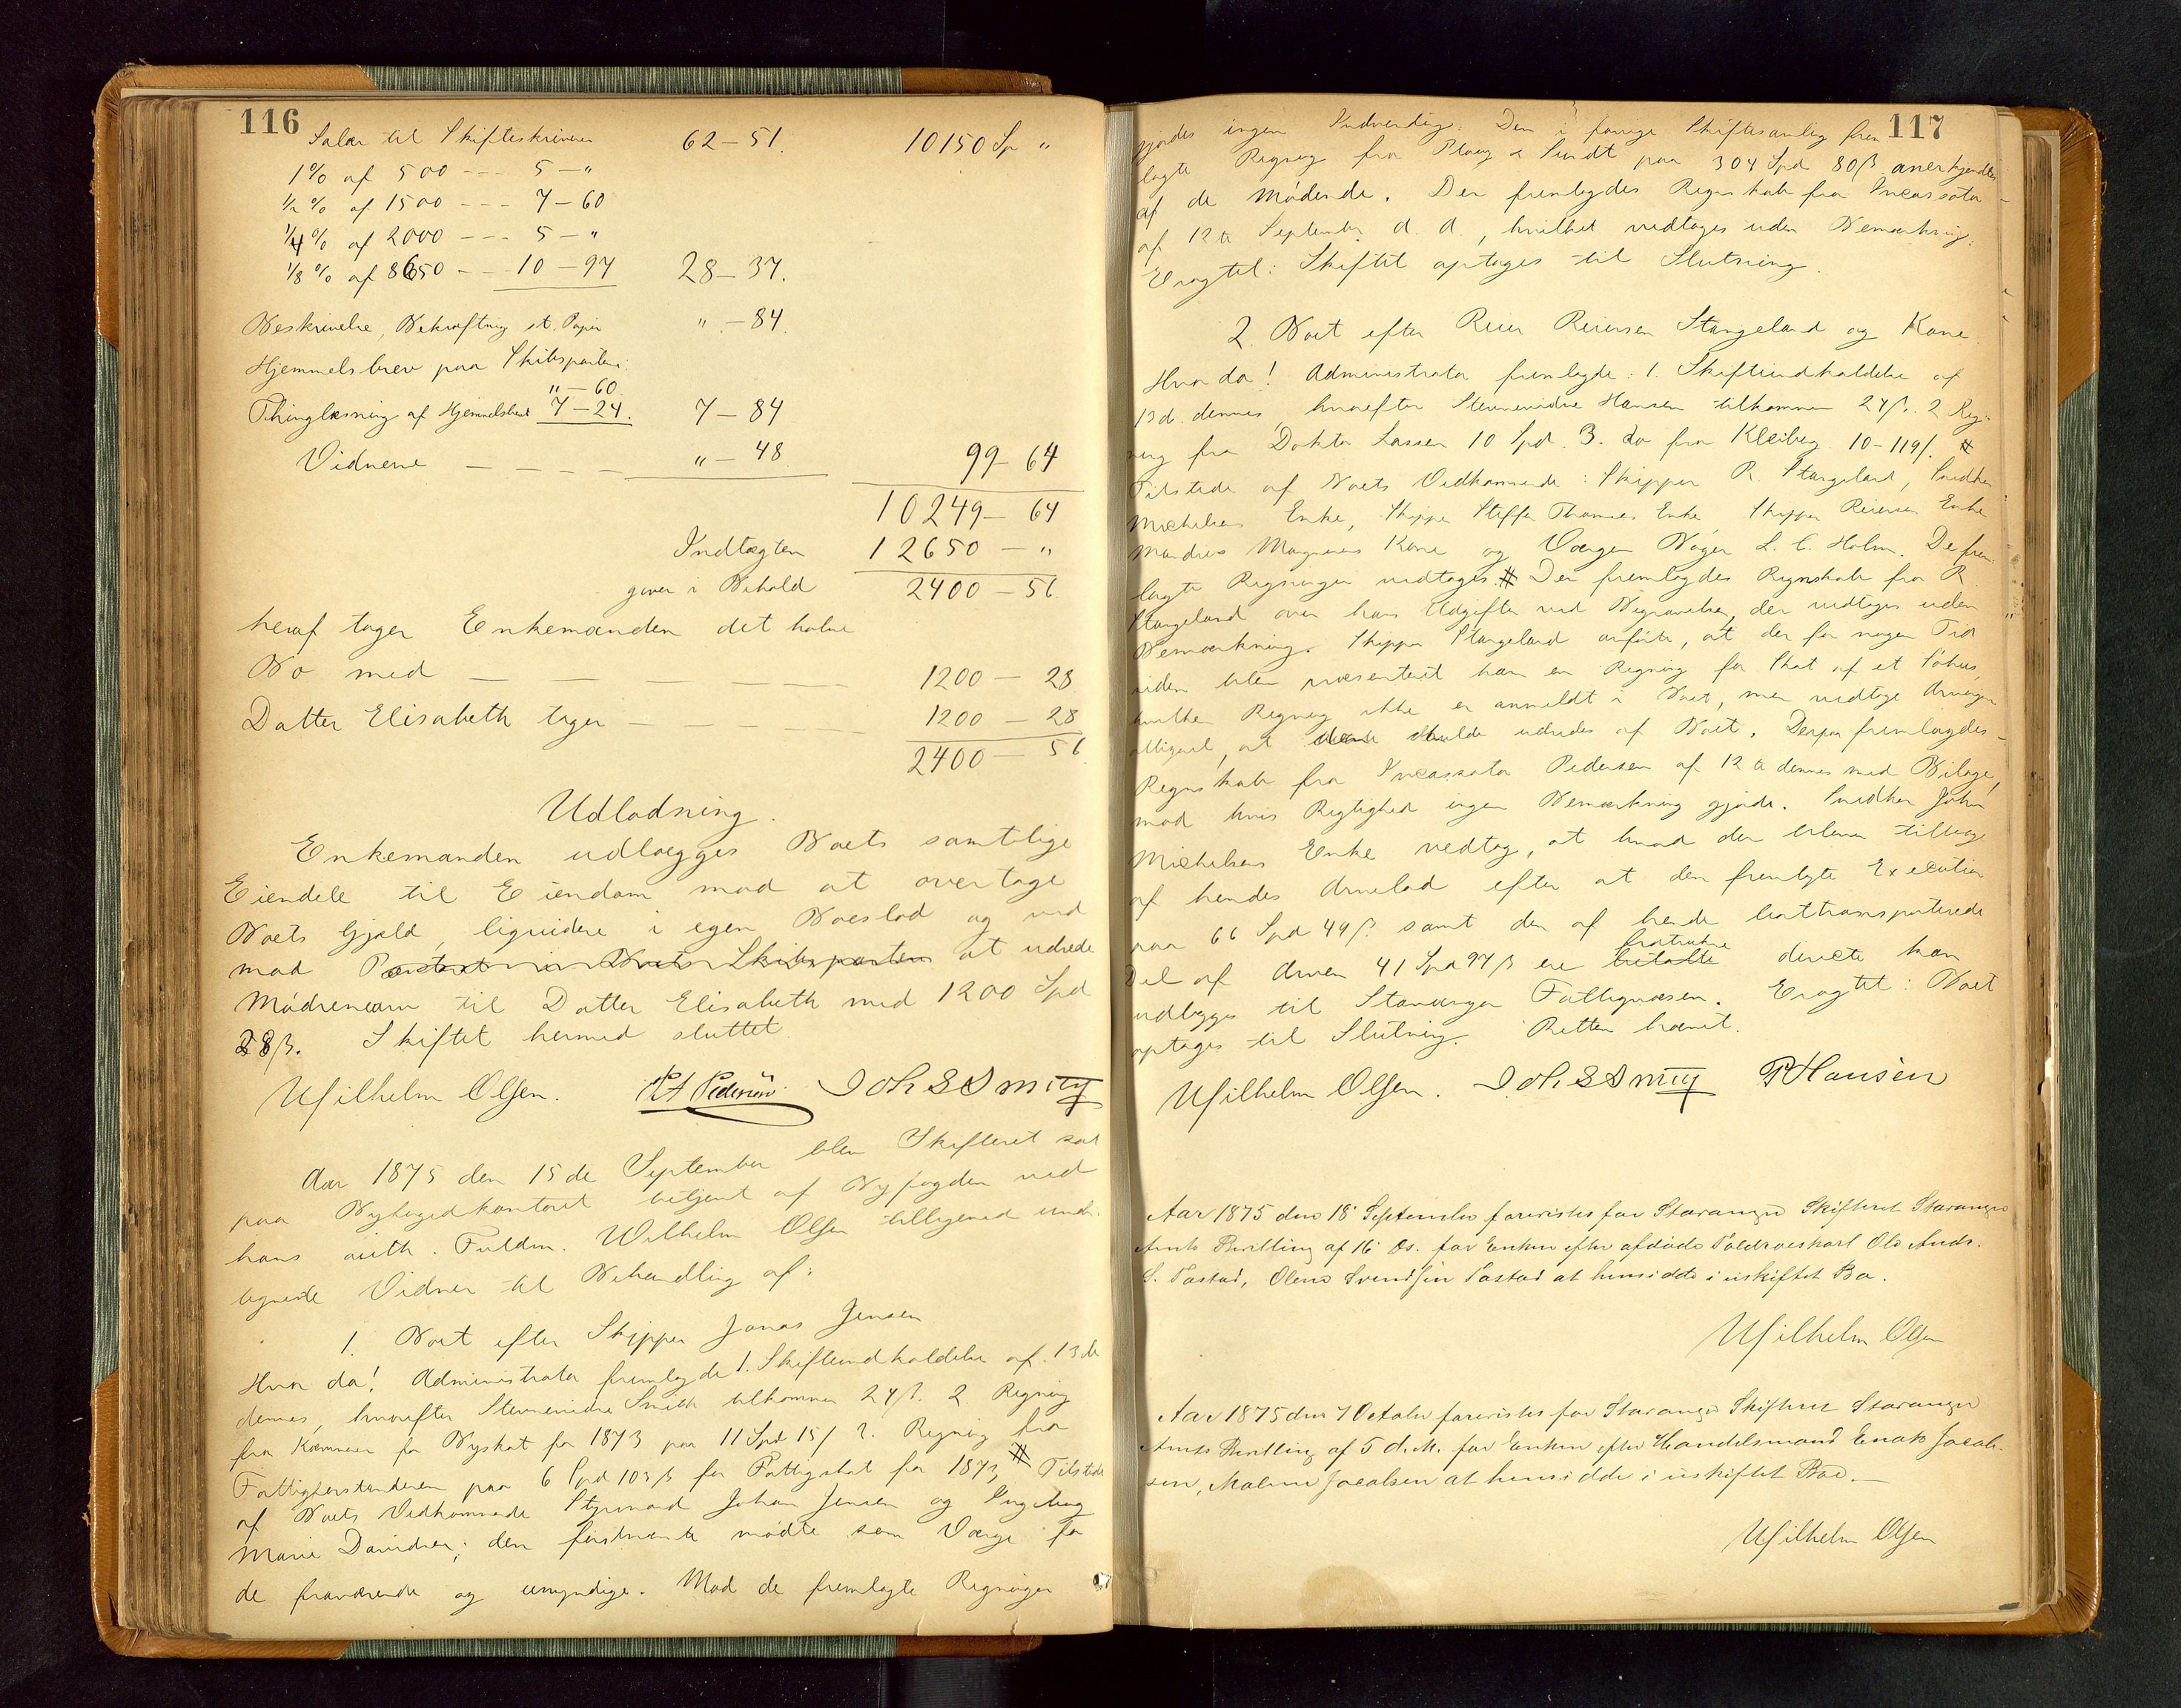 116
Salær til Skifteskriveren 62-51. 10150 Sp "
1% af 500 --- 5-"
½ % af 1500 --- 7-60
¼ % af 2000 --- 5-"
⅛ % af 8650 --- 10-94 28-34.
Beskrivelse, Bekræftning st. Papir "-84.
Hjemmelsbrev paa Skibsparten:
"-60
Thinglæsning af Hjemmelsbrevet 7-24. 7-84
Vidnerne - - - - "-48 99-64
10249-64
Indtægten 12650-"
giver i Behold 2400-56.
heraf tager Enkemanden det halve
Bo med - - - - - 1200-28
Datter Elisabeth tager - - - 1200-28
2400-56
Udlodning.
Enkemanden udlægges Boets samtlige
Eiendele til Eiendom mod at overtage
Boets Gjæld, liqvidere i egen Boeslod og ved
mod Panteret i Boets Skibsparten at udrede
Mødrenearv til Datter Elisabeth med 1200 Spd
28 β. Skiftet hermed sluttet.
Wilhelm Olsen. Pedersen Joh S Smith
Aar 1875 den 15de September blev Skifteret sat
paa Byfogedkontoret betjent af Byfogden ved
hans auth. Fuldm. Wilhelm Olsen tilligemed und.
tegnede Vidner til Behandling af:
1. Boet efter Skipper Jonas Jensen
Hvor da! Administrator fremlagde 1. Skifteindkaldelse af 13de
dennes, hvorefter Stevnevidne Smith tilkommer 24 β. 2. Regning
fra Kæmneren for Byskat for 1873 paa 11 Spd 15 β 3. Regning fra
Fattigforstanderen paa 6 Spd 103 β for Fattigskat for 1873, # Tilstede
af Boets Vedkommende Styrmand Johan Jensen og Ingeborg
Marie Davidsen; den førstnævnte mødte som Værge for
de fraværende og umyndige. Mod de fremlagte Regninger
117
gjordes ingen Indvending. Den i forrige Skiftesamling frem
lagte Regning fra Ploug & Sundt paa 304 Spd 80 β anerkjendtes
af de Mødende. Der fremlagdes Regnskab fra Incassator
af 12te September d. A., hvilket vedtages uden Bemærkning.
Eragtet: Skiftet optages til Slutning.
2. Boet efter Reier Reiersen Stangeland og Kone.
Hvor da! Administrator fremlagde: 1. Skifteindkaldelse af
13 d. dennes, hvorefter Stevnevidne Hansen tilkommer 24 β. 2 Reg-
ning fra Doktor Lassen 10 Spd. 3. do fra Kleiberg 10-119 β. #
Tilstede af Boets Vedkommende: Skipper R. Stangeland, Snedker
Michelsens Enke, Skipper Steffen Thomsens Enke, Skipper Reiersens Enke
Mandius Magnesens Kone og Værgen Bager L. C. Holm. De frem
lagte Regninger vedtages. # Der fremlagdes Regnskab fra R.
Stangeland over hans Udgifter ved Begravelsen, der vedtages uden
Bemærkning. Skipper Stangeland anførte, at der for nogen Tid
siden blev præsenteret ham en Regning for Skat af et Søhus,
hvilken Regning ikke er anmeldt i Boet, men vedtoge Arvingerne
alligevel, at denne skulde udredes af Boet. Derpaa fremlagdes
Regnskab fra Incassator Pedersen af 12te dennes med Bilage,
mod hvis Rigtighed ingen Bemærkning gjorde. Snedker John
Michelsens Enke vedtog, at hvad der bliver tillagt
af hendes Arvelod efter at den fremlagte Execution
paa 66 Spd 49 β samt den af hende borttransporterede
Del af Arven 41 Spd 97 β ere betalte fratrukne directe kan
udlægges til Stavanger Fattigvæsen. Eragtet: Boet
optages til Slutning. Retten hævet.
Wilhelm Olsen. Joh S Smith P Hansen
Aar 1875 den 18 September forevistes for Stavanger Skifteret Stavanger
Amts Bevilling af 16 ds. for Enken efter afdøde Toldroerskarl Ole Andr.
S. Tastad, Olene Svendsen Tastad at hensidde i uskiftet Bo.
Wilhelm Olsen
Aar 1875 den 7 Octobr forevistes for Stavanger Skifteret Stavanger
Amts Bevilling af 5 d. M. for Enken efter Handelsmand Enok Jacob-
sen, Malene Jacobsen at hensidde i uskiftet Bo.-
Wilhelm Olsen